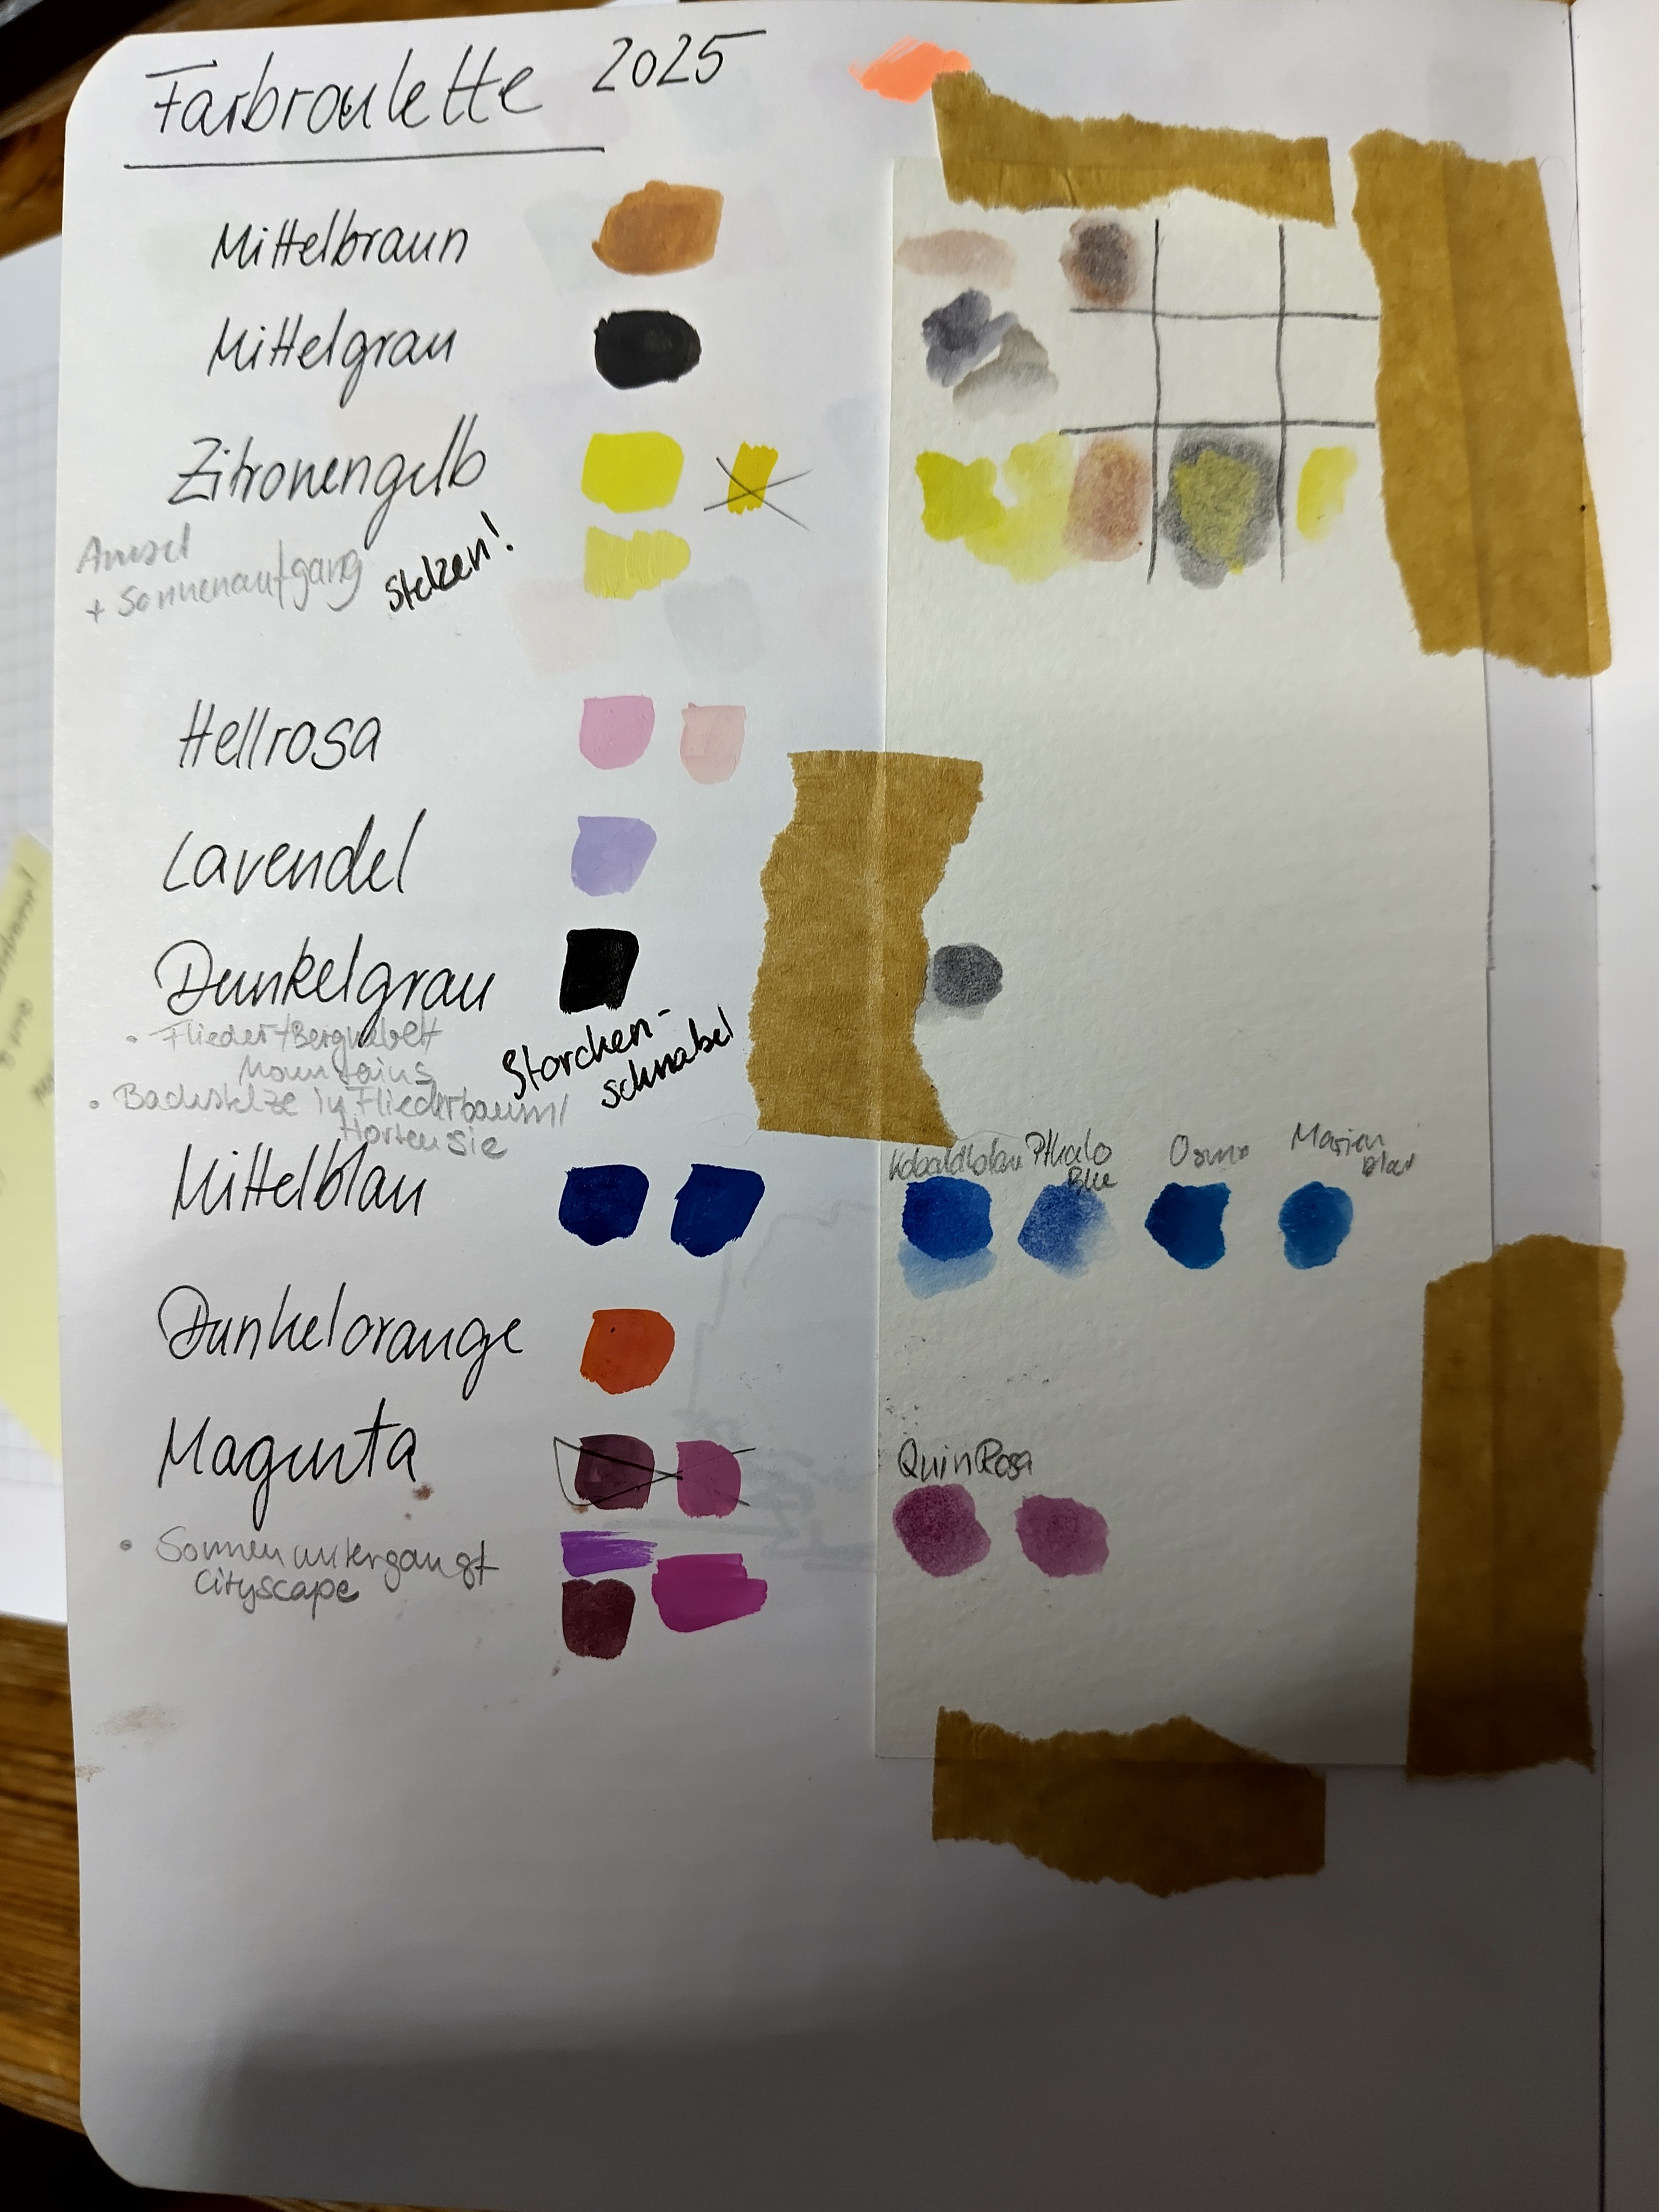 Farbroulette 2025
Mittelbraun
Mittelgrau
Zitronengelb
Amsel
+ Sonnenaufgang
Stelzen!
Hellrosa
Lavendel
Dunkelgrau
• Flieder+Bergwelt
Mountains
• Bachstelze in Fliederbaum/
Hortensie
Storchen-
schnabel
Mittelblau
Kobaldblau Pthalo
Blue
Marien
blau
Dunkelorange
Magenta
QuinRosa
• Sonnenuntergangst
Cityscape